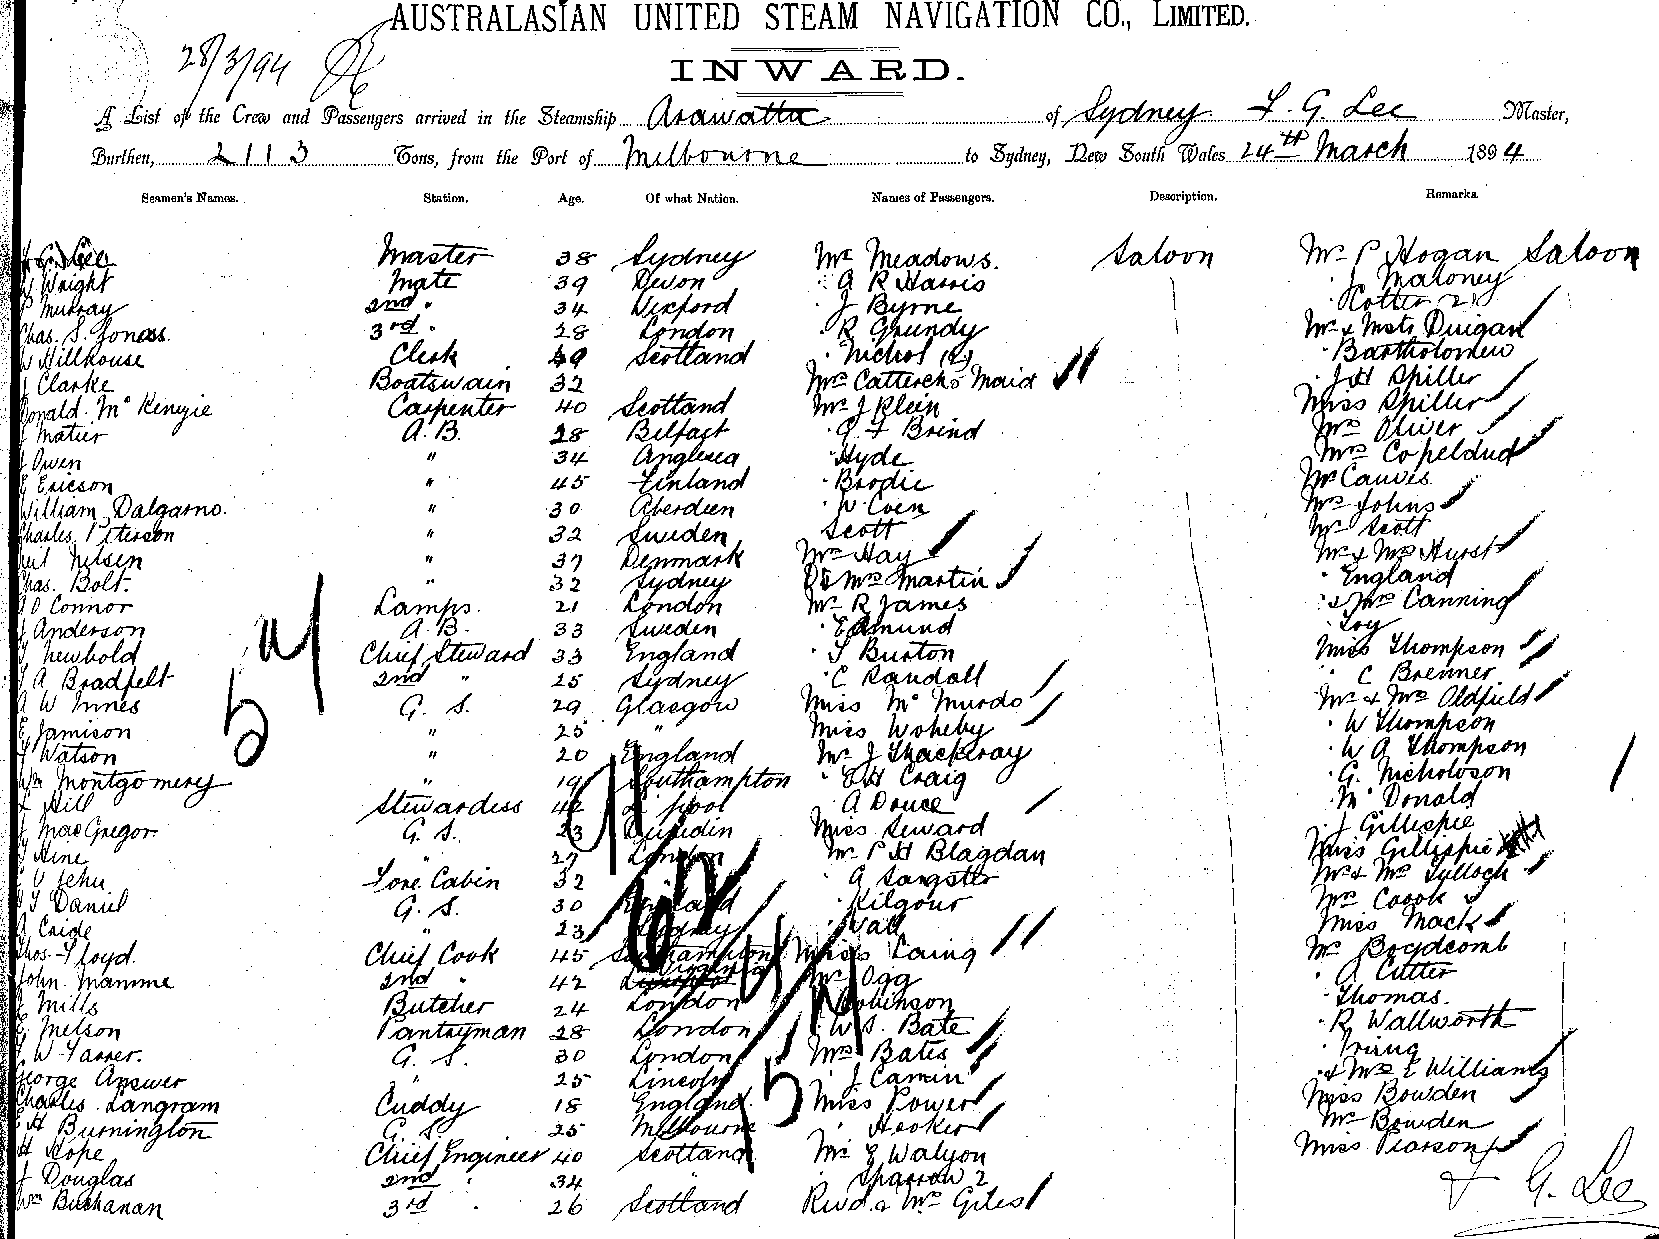 AUSTRALASIAN UNITED STEAM NAVIGATION CO., LIMITED.
28/3/94
INWARD.
A List of the Crew and Passengers arrived in the Steamship Arawatta of Sydney F. G. Lee Master,
Burthen, 2113 Tons, from the Port of Melbourne to Sydney, New South Wales 24th March 1894
Seamen's Names. Station. Age. Of what Nation. Names of Passengers. Description. Remarks.
Lee Master 38 Sydney Mr Meadows. Saloon Mr P Hogan Saloon
Wright Mate 39 Devon " A R Harris " J Maloney
Murray 2nd " 34 Wexford " J Byrne
Chas. S. Jones. 3rd " 28 London " R Grundy Mr & Mstr Duigan
W Hillhouse Clerk 49 Scotland " Nichol (2) " Bartholomew
J Clarke Boatswain 32 Maid " J H Spiller
Donald McKenzie Carpenter 40 Scotland Mr J Klein Miss Spiller
J Matier A. B. 28 Belfast " Brind Mrs Oliver
J Owen " 34 Anglesea " Hyde Mrs
Ericson " 45 Finland " Brodie Mr
William Dalgarno. " 30 Aberdeen " W Coen Mrs Johns
Charles Peterson " 32 Sweden Scott Mr Scott
Nelsen " 37 Denmark Mrs Hay Mr & Mrs Hurst
Chas. Bolt. " 32 Sydney Mrs Martin " England
O Connor Lamps. 21 London Mr R James " & Mrs Canning
J Anderson A. B. 33 Sweden " Edmund
Newbold Chief Steward 33 England " Burton Miss Thompson
A Bradfelt 2nd " 25 Sydney " C Randall " C Brenner
A W Innes G. S. 29 Glasgow Miss McMurdo Mr & Mrs Oldfield
E Jamison " 25 " Miss Woheby " W Thompson
Watson " 20 England Mr J Thackeray " W A Thompson
Wm Montgomery " 19 Southampton " E H Craig " G. Nicholson
Hill Stewardess 42 L'pool " A Douce " McDonald
J MacGregor G. S. 23 Dunedin Miss Seward " J Gillespie
Hine " 27 London Mr P H Blagdan Miss Gillispie
Jehu Fore Cabin 32 " A Sangster Mr & Mrs Tulloch
Daniel G. S. 30 England " Kilgour Mrs
A Caide " 23 Sydney " Wall Miss Mack
Thos. Floyd. Chief Cook 45 Southampton Miss Laing Mr Boydcomb
John Mamme 2nd " 42 Mr Ogg " A Cutter
Mills Butcher 24 London " Robinson " Thomas.
Melson Pantryman 28 London " W. S. Bate " R Wallworth
W Farrer. G. S. 30 London Mrs Bates " Irving
George Answer " 25 Lincoln " J Camin " & Mrs E Williams
Charles Langram Cuddy 18 England Miss Power Miss Bowden
H Burnington G. S. 25 Melbourne " Hooker Mr Bowden
Hope Chief Engineer 40 Scotland Mr E Walyon Miss Pearson
J Douglas 2nd " 34 " Sparrow 2
Wm Buchanan 3rd " 26 Scotland Revd & Mrs Giles
F G. Lee